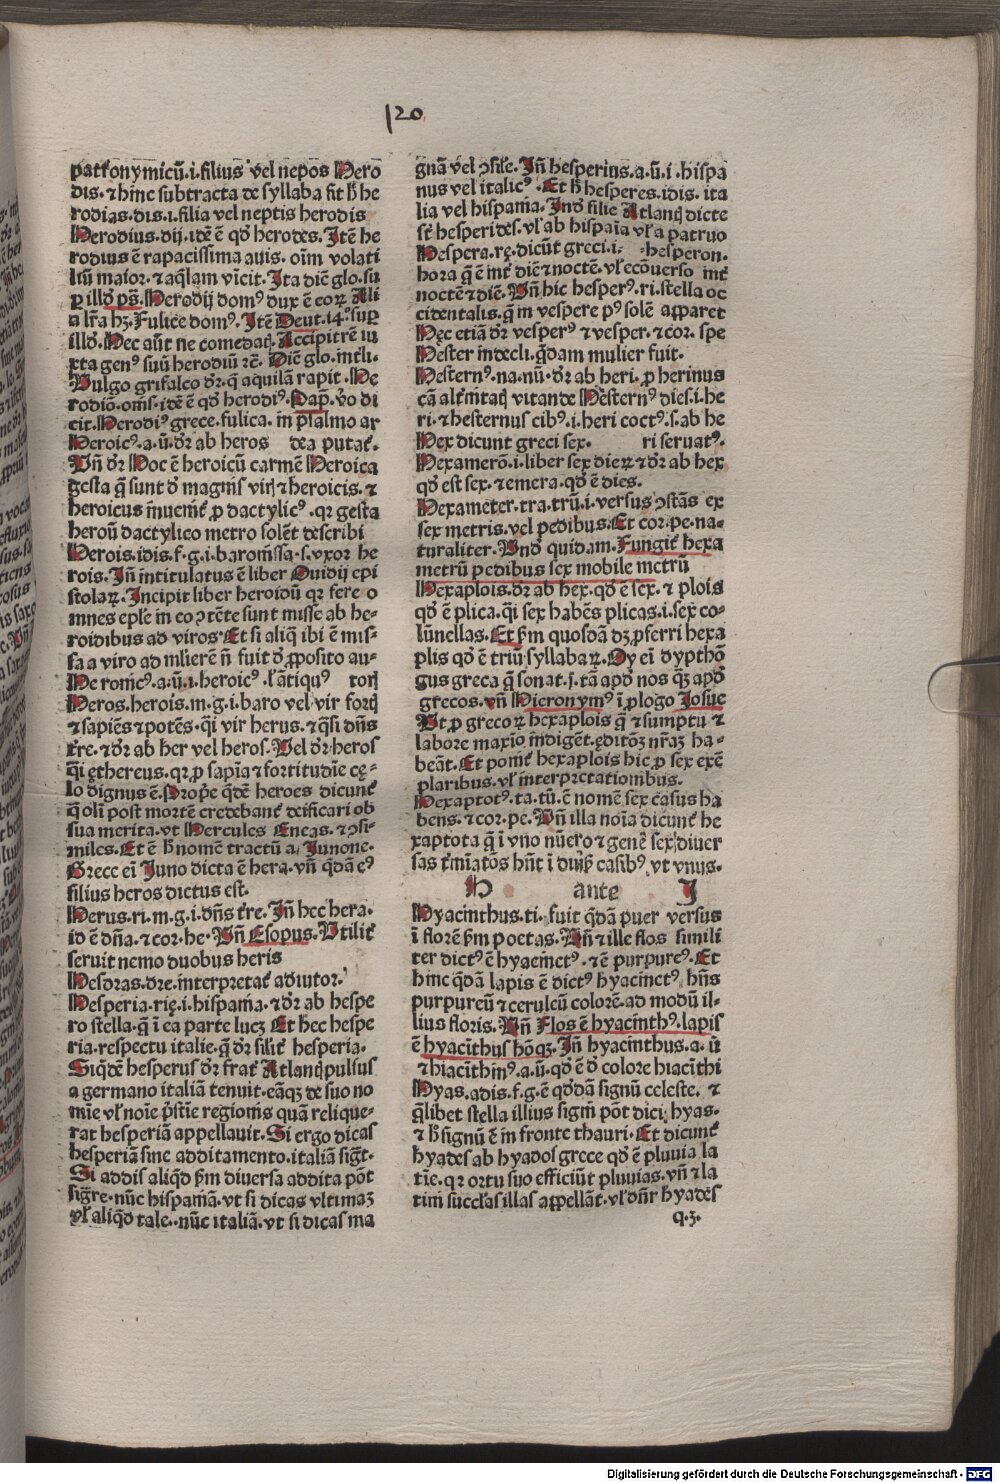 120
patronymicū.i.filius vel nepos Hero
dis.⁊ hinc subtracta de syllaba fit h̄ he
rodias.dis.i.filia vel neptis herodis
Herodius.dij.idē ē qd̄ herodes.Itē he
rodius ē rapacissima auis. oīm volati
liū maior.⁊ aq̄lam vīcit. Ita dic̄ glo. su
ꝑ illd̓ ps̄. Herodij domꝰ dux ē eoꝝ Ali
a lr̄a hꝫ. Fulice domꝰ. Itē Deut. 14.° suꝑ
illd̓. Hec aūt ne comedatꝭ. Accipitrē iu
xta genꝰ suū herodiū rc̄. Dic̄ glo. intl̓i.
Vulgo grifalco dr̄. q̄ aquilā rapit. He
rodiō. oms̄. idē ē qd̄ herodiꝰ. Pap̄. v̓o di
cit. Herodiꝰ grece. fulica. in psalmo ar
Heroicꝰ.a.ū. dr̄ ab heros dea putat̄.
Vn̄ dr̄ Hoc ē heroicū carmē Heroica
gesta q̄ sunt d̓ magnis virꝭ ⁊ heroicis. ⁊
heroicus inuenit̄ ꝓ dactylicꝰ. qꝛ gesta
heroū dactylico metro solēt describi
Herois.idis.f.g.i.baronissa.s.vxor he
rois. In̄ intitulatus ē liber Ouidij epi
stolaꝝ. Incipit liber heroidū qꝛ fere o
mnes eplē in eo ꝯtēte sunt misse ab he-
roidibus ad viros. Et si aliq̄ ibi ē mis-
sa a viro ad mlierē n̄ fuit d̓ ꝓposito au-
Heromcꝰ.a.ū.i.heroicꝰ. l̓ ātiquꝰ torꝭ
Heros.herois.m.g.i.baro vel vir fortꝭ
⁊ sapiēs ⁊ potēs. q̄i vir herus. ⁊ q̄si dn̄s
tr̄e. ⁊ dr̄ ab her vel heros. Vel dr̄ heros
q̄i ęthereus. qꝛ ꝓ sapīa ⁊ fortitudīe cę-
lo dignus ē. Prop̄e q̄dē heroes dicunt̄
q̄ oli post mortē credebant̄ deificari ob
sua merita. vt Hercules Eneas. ⁊ ꝯsi-
miles. Et ē h̄ nomē tractū a Junone.
Grece ei Juno dicta ē hera. vn̄ q̄dā eꝰ
filius heros dictus est.
Herus.ri.m.g.i.dn̄s tr̄e. In̄ hec hera.
id ē dn̄a. ⁊ cor. he. Vn̄ Esopus. Vtilit̄
seruit nemo duobus heris
Hesdras.dre.interpretat̄ adiutor.
Hesperia.rię.i.hispania. ⁊ dr̄ ab hespe
ro stella. q̄ i ea parte lucꝫ Et hec hespe
ria. respectu italie. q̄ dr̄ silit̄ hesperia.
Siqdē hesperus dr̄ frat̄ Atlantꝭ pulsus
a germano italiā tenuit. eāqꝫ de suo no
mie vl̓ noīe pstie regionis quā relique-
rat hesperiā appellauit. Si ergo dicas
hesperiā sine additamento. italiā sigt̄.
Si addis aliqd̓ ẜm diuersa addita pōt
sigre. nūc hispaniā. vt si dicas vltimaꝫ
vl̓ aliqd̓ tale.. nūc italiā. vt si dicas ma
gnā vel ꝯsile. In̄ hesperius.a.ū.i.hispa
nus vel italicꝰ. Et h̄ hesperes.idis. ita
lia vel hispania. Ind̓ filie Atlantꝭ dicte
st̄ hesperides. vl̓ ab hispaīa vl̓ a patruo
Hespera.rę. dicūt greci. i. hesperon.
hora q̄ ē int̄ diē ⁊ noctē. vl̓ ecōuerso int̄
noctē ⁊ diē. Vn̄ hic hesperꝰ.ri. stella oc
cidentalis. q̄ in vespere pꝰ solē apparet
Hęc etiā dr̄ vesperꝰ ⁊ vesper. ⁊ cor. spe
Hester indecli. q̄dam mulier fuit.
Hesternꝰ.na.nū. dr̄ ab heri. ꝓ herinus
cā alt̄initatꝭ vitande Hesternꝰ dies.i.he
ri. ⁊ hesternus cibꝰ.i. heri coctꝰ.s.ab he
Hex dicunt greci sex. ri seruatꝰ.
Hexamerō.i.liber sex dieꝝ ⁊ dr̄ ab hex
qd̄ est sex. ⁊ emera. qd̄ ē dies.
Hexameter.tra.trū.i. versus ꝯstās ex
sex metris. vel pedibus. Et cor. pe. na-
turaliter. Vnd̓ quidam. Fungit̄ hexa
metrū pedibus sex mobile metrū
Hexaplois. dr̄ ab hex. qd̄ ē sex. ⁊ plois
qd̄ ē plica. q̄i sex habēs plicas. i. sex co-
lūnellas. Et ẜm quosdā dꝫ ꝓferri hexa
plis qd̄ ē triū syllabaꝝ. Oy ei dypthō
gus greca q̄ sonat .i. tā apd̓ nos qꝫ apd̓
grecos. vn̄ Hieronymꝰ ī ꝓlogo Josue
Vt ꝓ grecoꝝ hexaplois q̄ ⁊ sumptu ⁊
labore maxīo indigēt. ęditōꝫ nr̄aꝫ ha-
beāt. Et ponit̄ hexaplois hic ꝓ sex exē
plaribus. vl̓ interpretationibus.
Hexaptotꝰ.ta.tū. ē nomē sex casus ha
bens. ⁊ cor. pe. Vn̄ illa noīa dicunt̄ he
xaptota q̄ i vno nūero ⁊ genē sex diuer
sas t̄miatōs hn̄t i diuis̄ casibꝰ. vt vnus.
H ante J
Hyacinthus.ti. fuit q̄dā puer versus
ī florē ẜm poetas. Vn̄ ⁊ ille flos simili
ter dictꝰ ē hyacinctꝰ. ⁊ ē purpureꝰ. Et
hinc q̄dā lapis ē dictꝰ hyacinctꝰ. hn̄s
purpureū ⁊ ceruleū colorē. ad modū il-
lius floris. Vn̄ Flos ē hyacinthꝰ. lapis
ē hyacīthus hōqꝫ. In̄ hyacinthus.a.ū
⁊ hiacīthinꝰ.a.ū. qd̄ ē d̓ colore hiacīthi
Hyas.adis.f.g. ē qd̓dā signū celeste. ⁊
q̄libet stella illius signi pōt dici hyas.
⁊ h̄ signū ē in fronte thauri. Et dicunt̄
hyades ab hyados grece qd̄ ē pluuia la
tīe. qꝛ ortu suo efficiūt pluuias. vn̄ ⁊ la
tini succl̓as illas appellāt. vl̓ dn̄r hyades
q.ʒ.
Digitalisierung gefördert durch die Deutsche Forschungsgemeinschaft - DFG